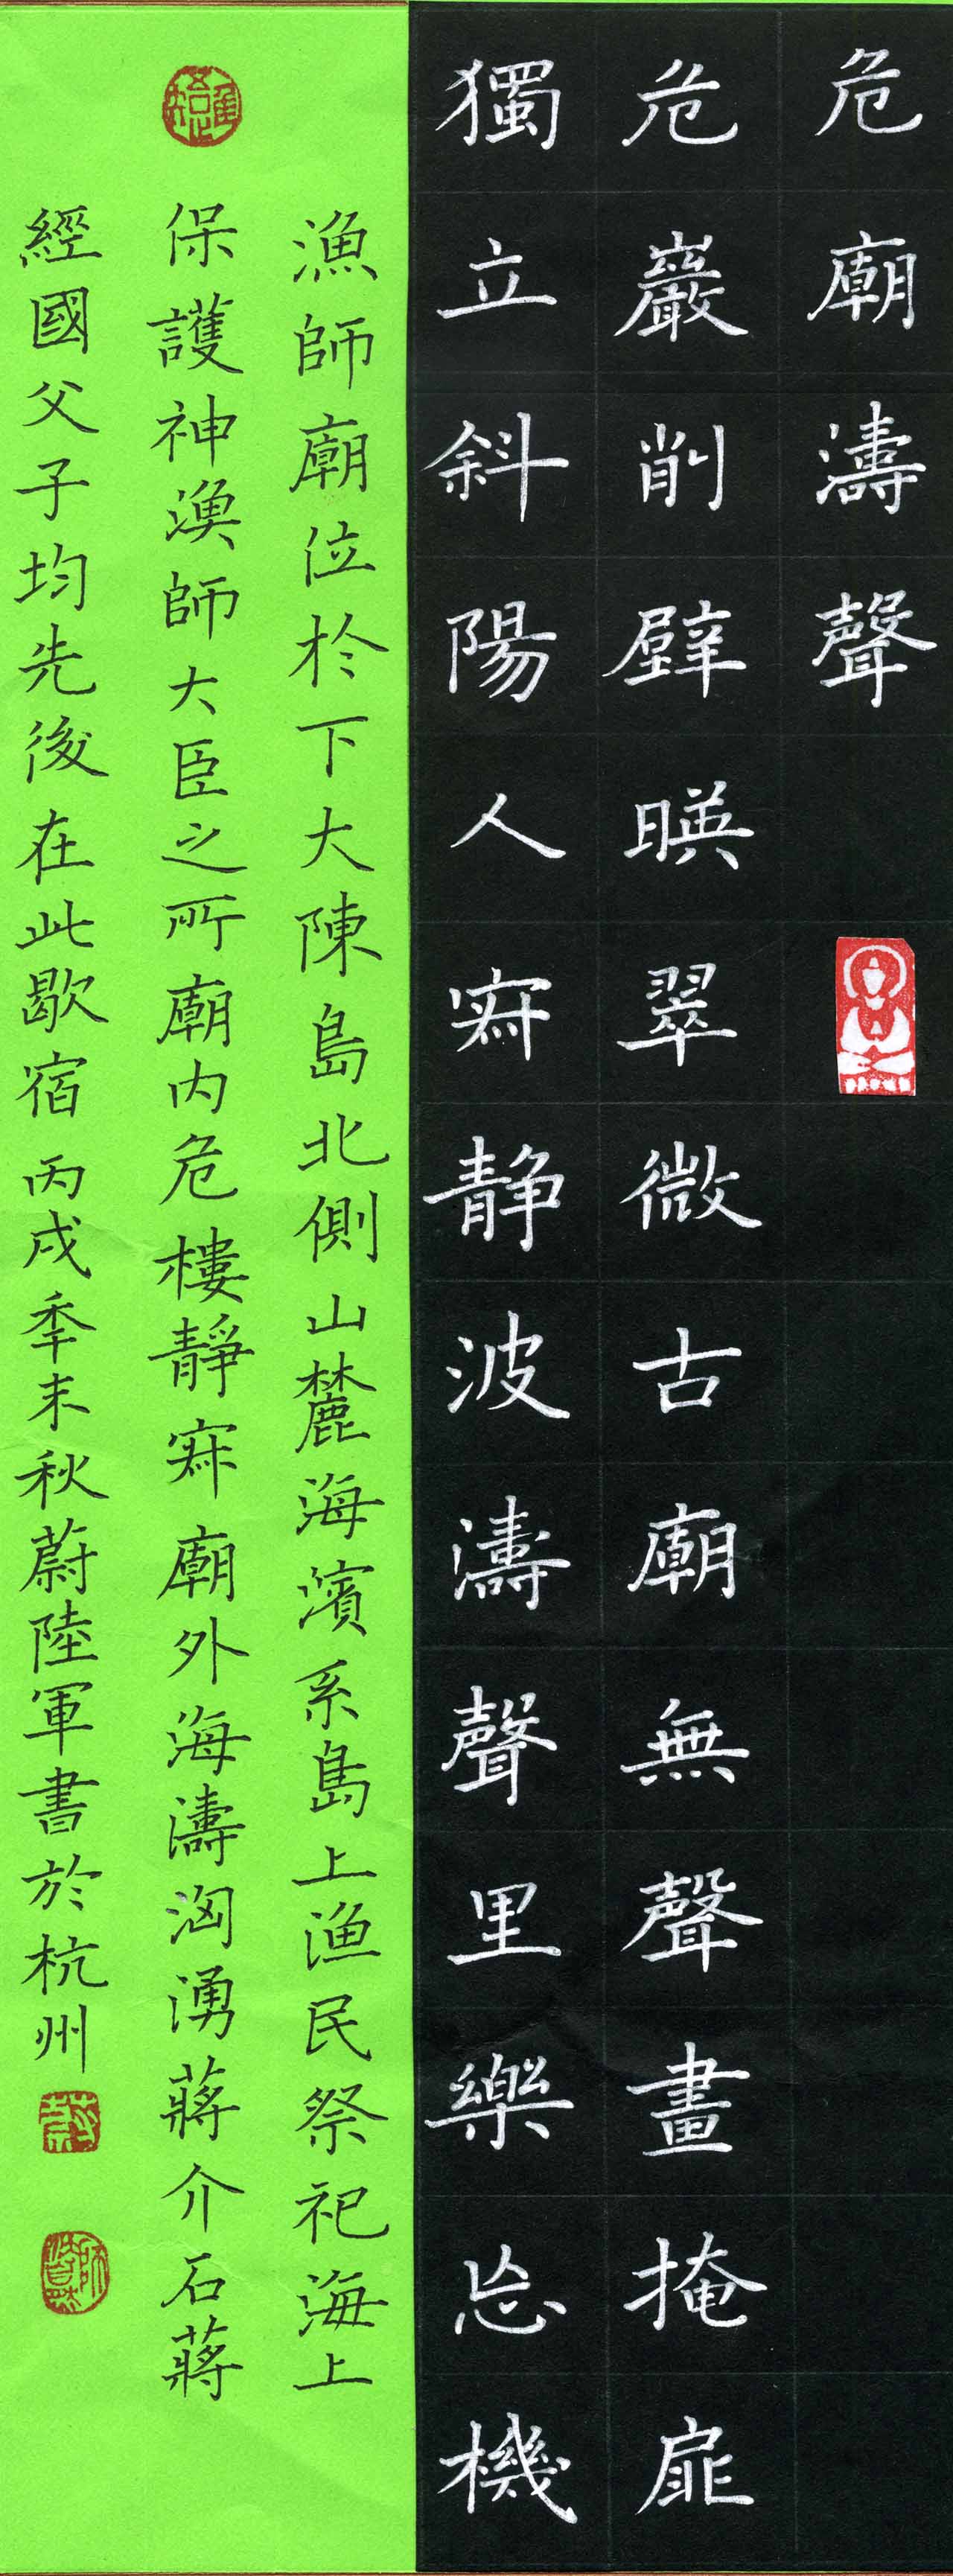 危廟濤聲
危巖削壁暎翠微古廟無聲晝掩扉
獨立斜陽人寂静波濤聲里樂忘機
漁師廟位於下大陳島北側山麓海濱系島上漁民祭祀海上
保護神漁師大臣之所廟内危樓靜寂廟外海濤洶湧蔣介石蔣
經國父子均先後在此歇宿丙戌季末秋蔚陸軍書於杭州